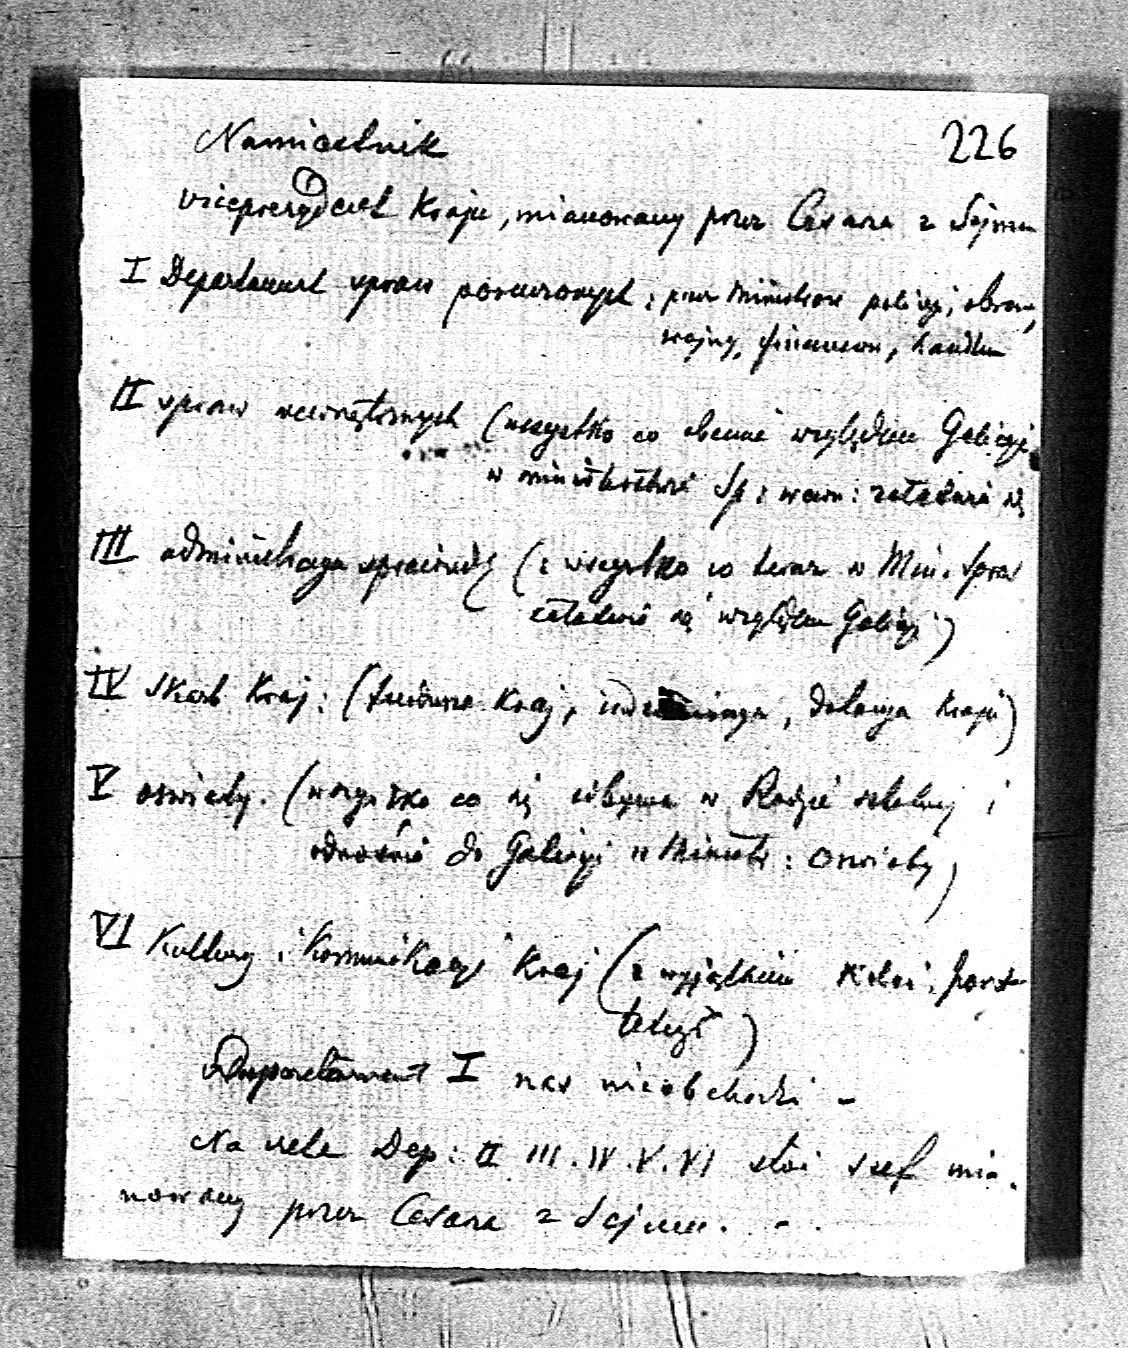 226
Namiestnik
viceprezydent Kraju, mianowany przez Cesarza z Sejmu
I Departament spraw poruczonych; przez Ministrów policyi, obrony,
wojny, finansów, handlu
II spraw wewnętrznych (wszystko co obecnie względem Galicyi
w ministerstwie Sp: wewn: załatwia się
III administracya sprawiedl (i wszystko co teraz w Min. Spraw
załatwia się względem Galicyi)
IV Skarb Kraj: (fundusze Kraj, , dotacya Kraju)
V oświaty. (wszystko co się odbywa w Radzie szkolnej i
odnośnie do Galicyi w Minist: Oswiaty)
VI Kultury i Komunikacyi Kraj (z wyjątkiem Kolei, poczt
telegr)
Departament I nas nieobchodzi –
Na czele Dep: II III. IV. V. VI stoi szef mia-
nowany przez Cesarza z Sejmu. – .